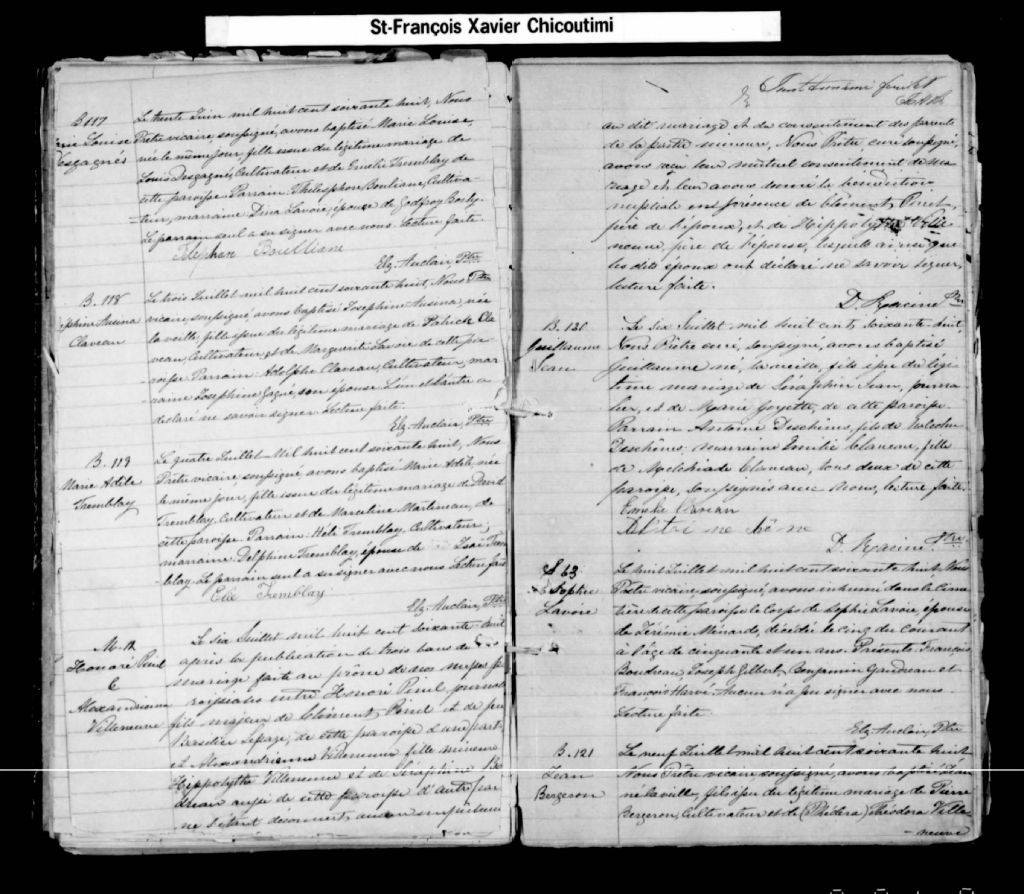 St-François Xavier Chicoutimi
B 117
Marie Louise
Desgagnés
Le trente Juin mil huit cent soixante huit, Nous
Prêtre vicaire, soussigné, avons baptisé Marie Louise,
née le même jour, fille issue du légitime mariage de
Louis Desgagnés, Cultivateur et de Emélie Tremblay de
cette paroisse. Parrain Thélesphore Bouliane, Cultiva-
teur, marraine Dina Lavoie, épouse de Godfroy
Le parrain seul a su signer avec nous. Lecture faite
Bouilliane
Elz. Auclair, Ptre
B. 118
Josephine Ausina
Claveau
Le trois Juillet mil huit cent soixante huit, Nous Ptre
vicaire, soussigné, avons baptisé Josephine Ausina, née
la veille, fille issue du légitime mariage de Patrick Cla
veau, Cultivateur et de Marguerite Lavoie de cette pa-
roisse. Parrain: Adolphe Claveau, Cultivateur, mar
raine Josephine Gagné son épouse. L'un et l'autre a
déclaré ne savoir signer. Lecture faite.
Elz. Auclair, Ptre
B. 119
Marie Adèle
Tremblay
Le quatre Juillet mil huit cent soixante huit, Nous
Prêtre vicaire soussigné, avons baptisé Marie Adèle, née
le même jour, fille issue du légitime mariage de
Tremblay, Cultivateur et de Marceline Martineau, de
cette paroisse. Parrain: Tremblay, Cultivateur,
marraine Delphine Tremblay, épouse de Isaï Trem
blay. Le parrain seul a su signer avec nous Lecture faite
Elie Tremblay
Elz. Auclair, Ptre
Honoré Pinel
&
Alexandrienne
Villeneuve
Le six Juillet mil huit cent soixante-huit
après la publication de trois bans de
mariage faite au prône de nos messes pa
roissiales entre Honoré Pinel journal
fils majeur de Clément Pinel et de feu
Lepage, de cette paroisse d'une part,
et Alexandrienne Villeneuve fille mineure
Hippolythe Villeneuve et de Séraphine
aussi de cette paroisse d'autre part
ne s'étant découvert aucun empêchement
feuillet
au dit mariage et du consentement des parents
de la partie mineure, Nous Prêtre, curé soussigné,
avons reçu leur mutuel consentement de ma
riage et leur avons donné la bénédiction
nuptiale en présence de Clément Pinel,
père de l'époux, et de Hippolythe Ville
neuve, père de l'épouse, lesquels ainsi que
les dits époux ont déclaré ne savoir signer,
lecture faite.
D. Racine Ptre
B. 120
Guillaume
Jean
Le six Juillet mil huit cent soixante huit
Nous Prêtre curé, soussigné, avons baptisé
Guillaume né, la veille, fils issu du légi-
time mariage de Séraphin Jean, journa
lier, et de Marie Goyette, de cette paroisse.
Parrain Antoine Deschênes, fils de Malcolm
Deschênes, marraine Emilie Claveau, fille
de Melchiade Claveau, tous deux de cette
paroisse, soussignés avec Nous, lecture faite.
D. Racine Ptre
S 63
Sophie
Lavoie
Le huit Juillet mil huit cent soixante huit, Nous
Prêtre vicaire, soussigné, avons inhumé dans le Cime
tière de cette paroisse le corps de Sophie Lavoie, épouse
de Jérémie Ménard, décédée le cinq du courant
à l'âge de cinquante et un ans. Présents: François
Boudreau, Joseph Gilbert, Benjamin Gaudreau et
François Hervé. Aucun n'a pu signer avec nous.
Lecture faite.
Elz. Auclair, Ptre
B. 121
Jean
Bergeron
Le neuf Juillet mil huit cent soixante huit
Nous Prêtre vicaire soussigné, avons baptisé Jean
né la veille, fils issu du légitime mariage de Pierre
Bergeron, Cultivateur et de (Phédora) Théodora Ville
-neuve